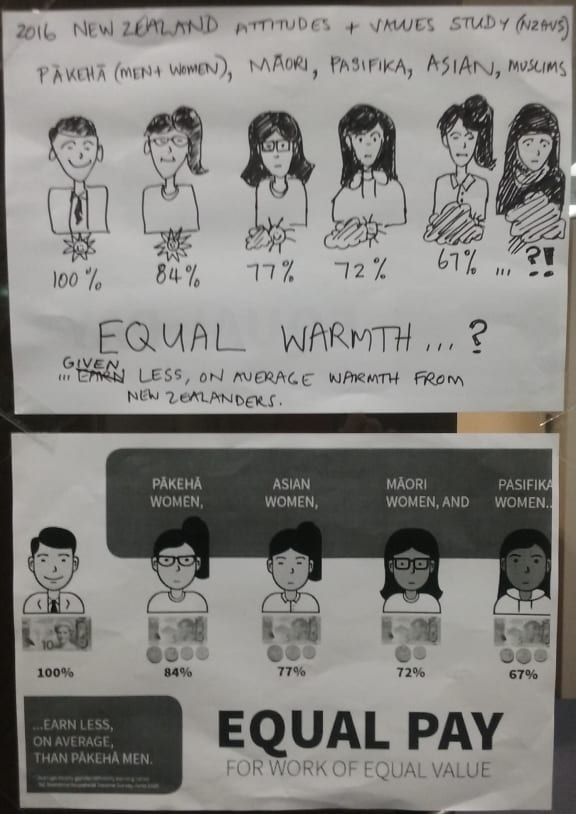 2016 NEW ZEALAND ATTITUDES + VALUES STUDY (NZAVS)
PĀKEHĀ (MEN + WOMEN), MĀORI, PASIFIKA, ASIAN, MUSLIMS
100% 84% 77% 72% 67% ... ?!
EQUAL WARMTH...?
GIVEN
... EARN LESS, ON AVERAGE WARMTH FROM
NEW ZEALANDERS.
PĀKEHĀ ASIAN MĀORI PASIFIKA
WOMEN, WOMEN, WOMEN, AND WOMEN..
10
100% 84% 77% 72% 67%
...EARN LESS,
ON AVERAGE,
THAN PĀKEHĀ MEN.
EQUAL PAY
FOR WORK OF EQUAL VALUE